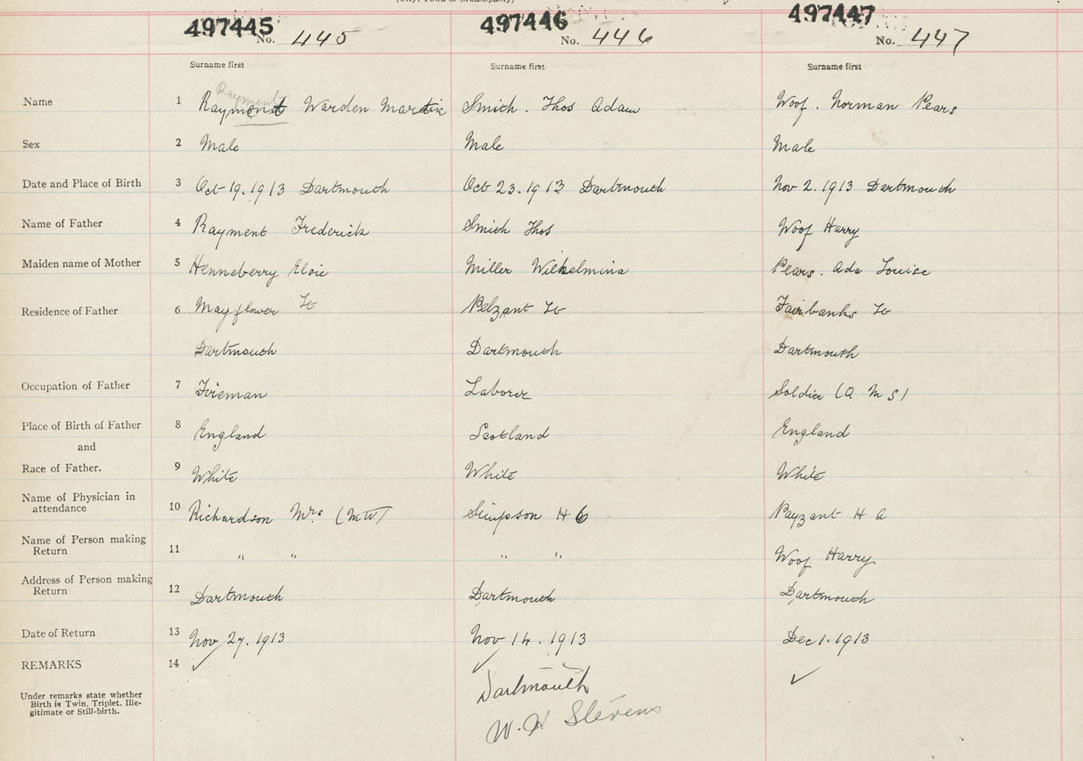 (City, Town or Municipality)
497445 497446 497447
No. 445 No. 446 No. 447
Surname first Surname first Surname first
Rayment
Name 1 Raymont Warden Martin Smith. Thos Adam Woof. Norman Pears
Sex 2 Male Male Male
Date and Place of Birth 3 Oct 19.1913 Dartmouth Oct 23.1913 Dartmouth Nov 2.1913 Dartmouth
Name of Father 4 Rayment Frederick Smith Thos Woof Harry
Maiden name of Mother 5 Henneberry Elsie Miller Wilhelmina Pears. Ada Louise
Residence of Father 6 Mayflower St Pelzant St Fairbanks St
Dartmouth Dartmouth Dartmouth
Occupation of Father 7 Fireman Laborer Soldier (Q M S)
Place of Birth of Father 8 England Scotland England
and
Race of Father. 9 White White White
Name of Physician in
attendance 10 Richardson Mrs (MW) Simpson H G Payzant H A
Name of Person making
Return 11 " " " " Woof Harry
Address of Person making
Return 12 Dartmouth Dartmouth Dartmouth
Date of Return 13 Nov 27.1913 Nov 14.1913 Dec 1.1913
REMARKS 14 ✓ ✓ ✓
Under remarks state whether
Birth is Twin, Triplet, Ille-
gitimate or Still-birth.
Dartmouth
W. H Stevens